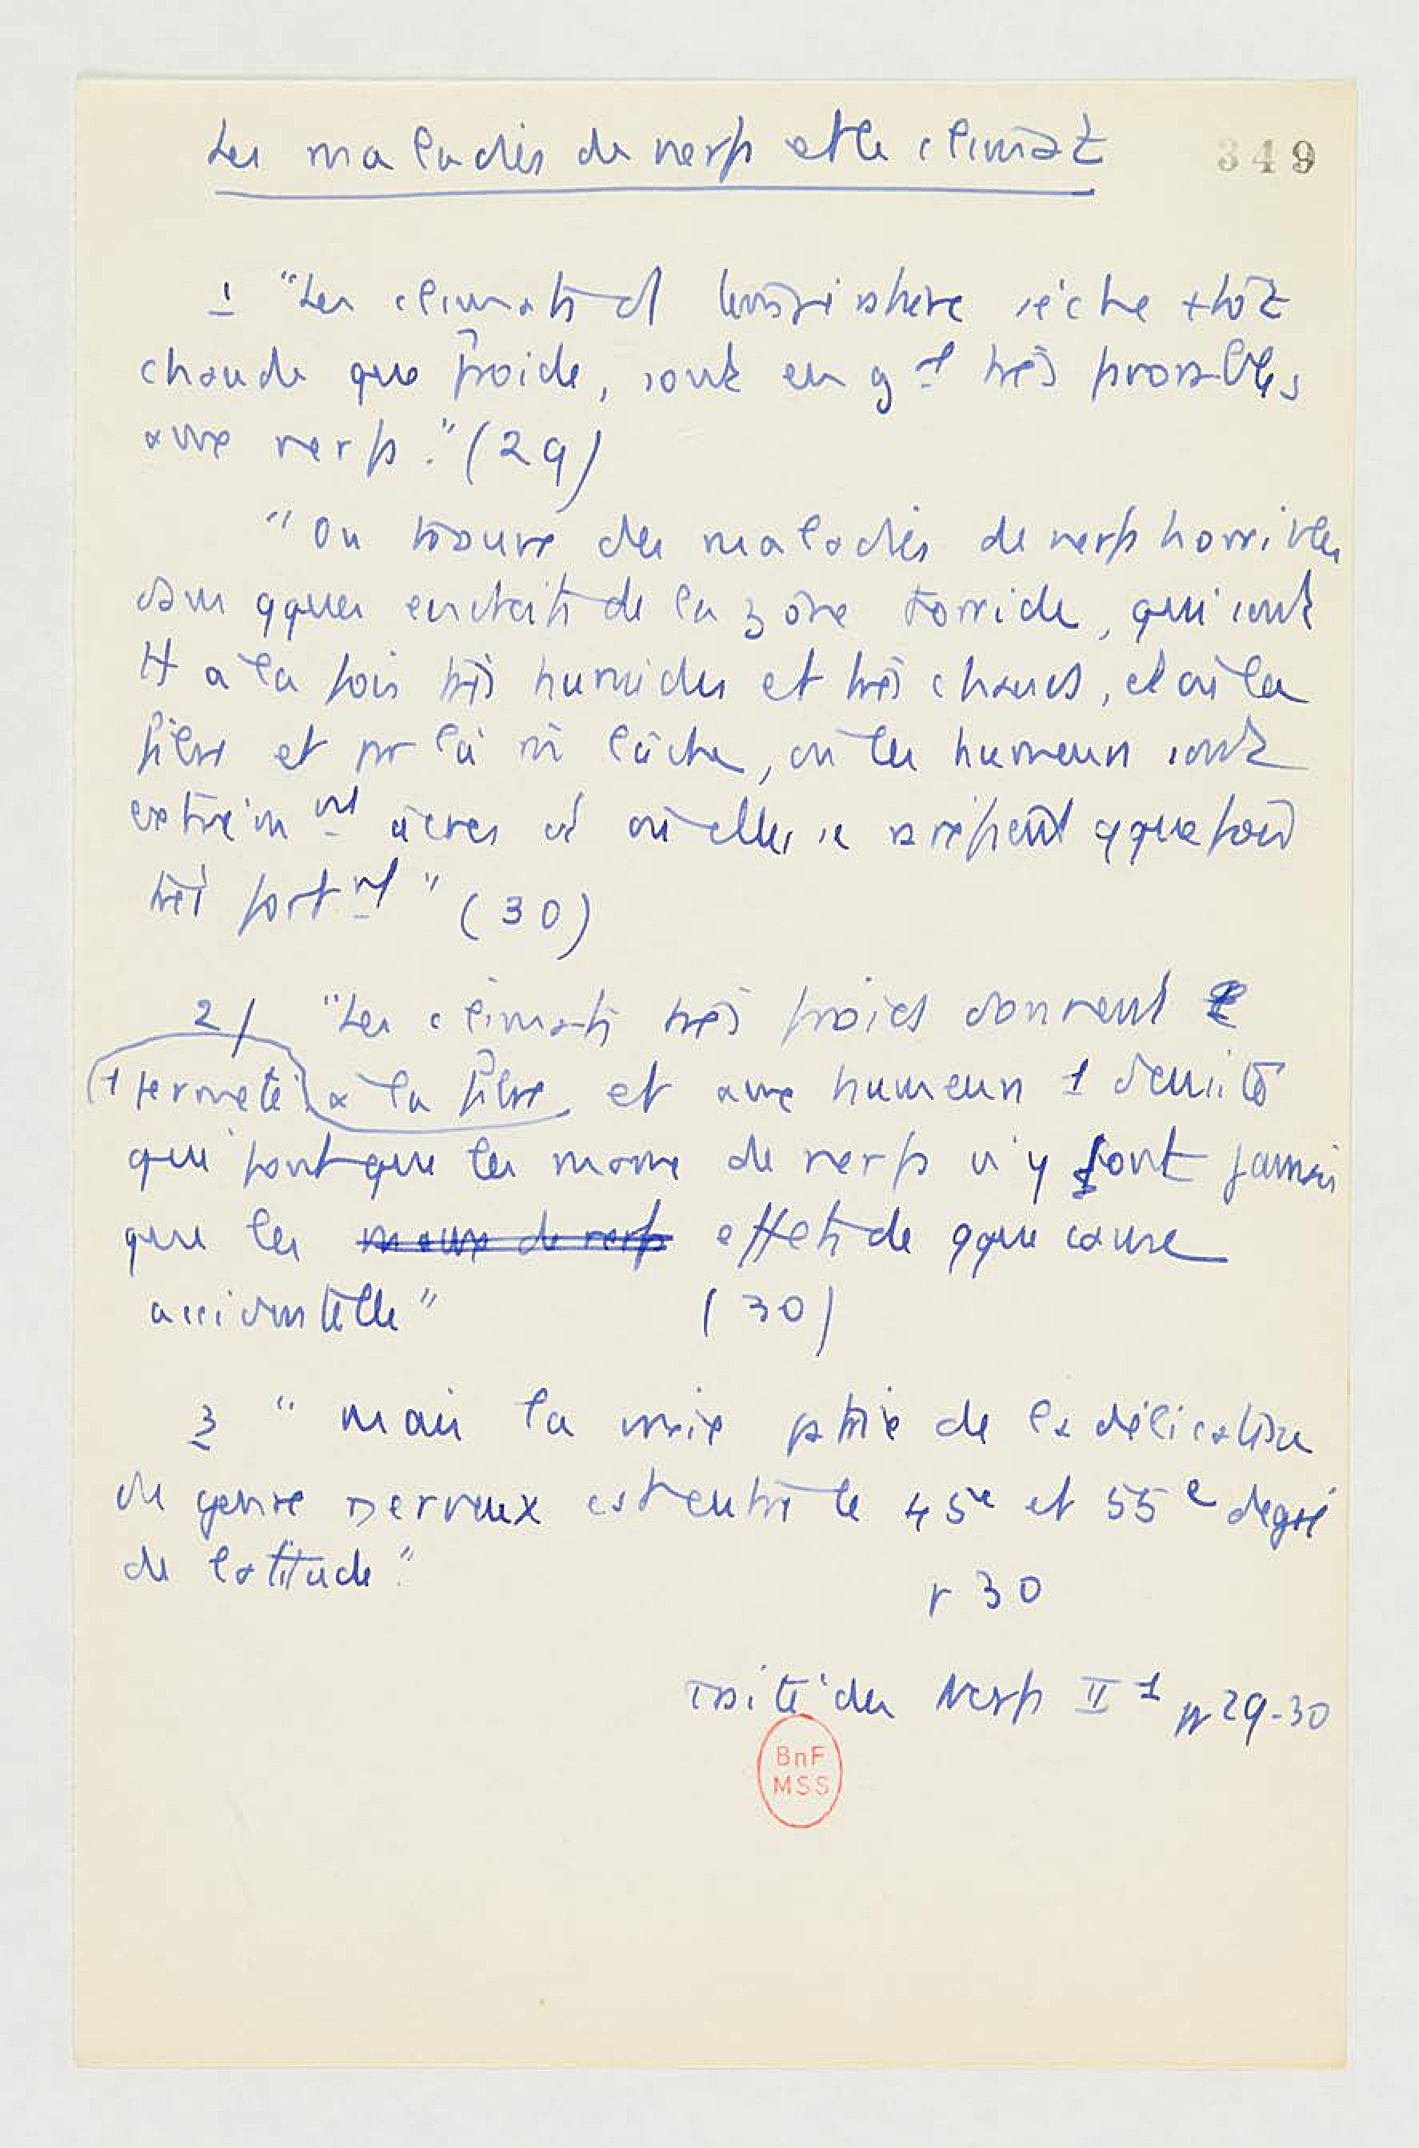 Les maladies de nerfs et le climat
349
1 "Les climats d' sèche + tôt
chaude que froide, sont en gal très favorables
aux nerfs." (29)
"On trouve des maladies de nerfs horribles
dans qques endroits de la zone torride, qui sont
tt à la fois très humides et très chauds, et où la
fibre et pr là si lâche, où les humeurs sont
extrêmmt âcres et où elles se qquefois
très fortmt" (30)
2/ "Les climats très froids donnent
1 fermeté à la fibre, et aux humeurs 1 densité
qui font que les maux de nerfs n'y sont jamais
que les maux de nerfs effets de qque cause
accidentelle" (30)
3 "Mais la vraie ptrie de la délicatesse
du genre nerveux est entre le 45e et 55e degré
de latitude".
p 30
Traité des Nerfs II 1 pp 29-30
BnF
MSS